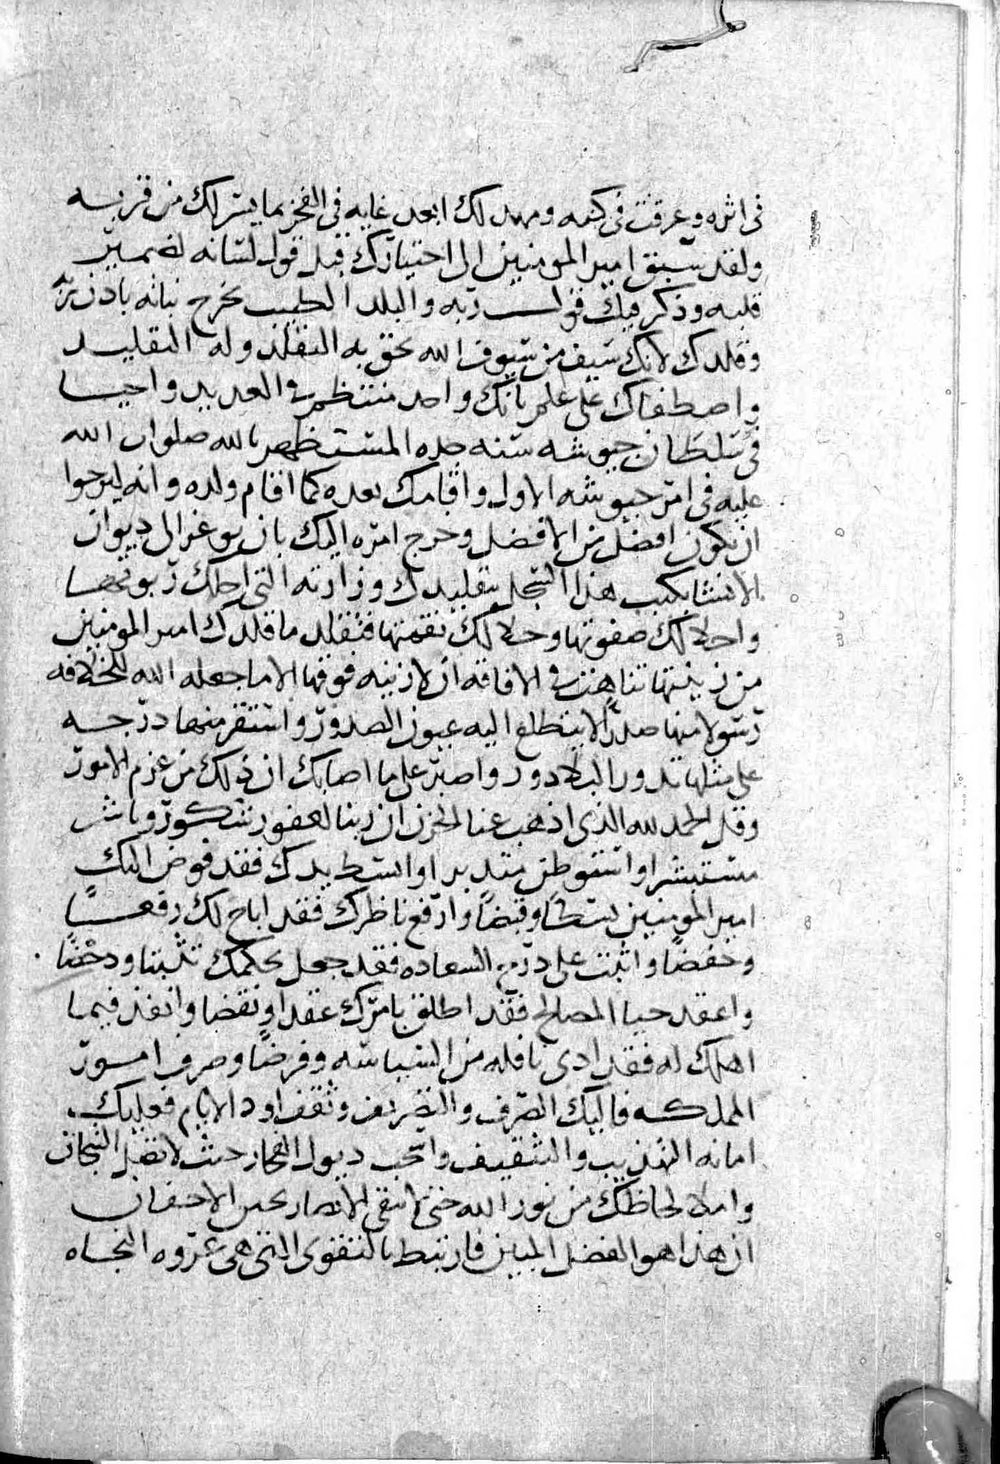 فى اثره وعرقت فى كمه ومهد لك ابعد غايه فى الفخر بما يستر لك من قربه
ولقد سبق امير المومنين الى اختيارك قبل قول لسانه لضمير
قلبه وذكر فيك قول ربه والبلد الطيب يخرج نباته باذن ربه
وقلدك لانك سيف من سيوف الله يحق به التقلد وله التقليد
واصطفاك على علم بانك واحد منتظم فى العديد واحيا
فى سلطان جيوشه سنه جده المستنظهر بالله صلوات الله
عليه فى امير جيوشه الاول واقامك بعده كما اقام ولده وانه ليرجوا
ان تكون افضل من الافضل وخرج امره اليك بان يوعز الى ديوان
الانشا بكتب هذا السجل بتقليدك وزارته التى احلك ربوتها
واحلا لك صفوتها وحلا لك نعمتها فتقلد ما قلدك امير المومنين
من رتبتها تناهت فى الافاقه ان لا زينه فوقها الا ما جعله الله للخلافه
رسولا منها صدرا لا يتطلع اليه عيون الصدور واستقر منها درجه
على مثلها تدور البدور واصبر على ما اصابك ان ذلك من عزم الامور
وقل الحمد لله الذى اذهب عنا الحزن ان ربنا لغفور شكور وباشر
مستبشرا واستوطن متديرا وابسط يدك فقد فوض اليك
امير المومنين بسطا وقبضا وارفع ناظرك فقد اباح لك رفعا
وخفضا واثبت على درج السعاده فقد جعل بحكمك تثبيتا ودحضا
واعقد حبا المصالح فقد اطلق بامرك عقدا ونقضا وانفذ فيما
اهلك له فقد ادى نافله من السياسه وفرضا وصرف امور
المملكه فاليك الصرف والتصريف وثقف اود الايام فعليك
امانه التهذيب والتثقيف واسحب ذيول الفخار حيث لا تصل التيجان
واملا لحاظك من نور الله حتى لا تتقى الابصار بحين الاجفان
ان هذا لهو الفضل المبين فارتبط بالتقوى التى هى عروه النجاه